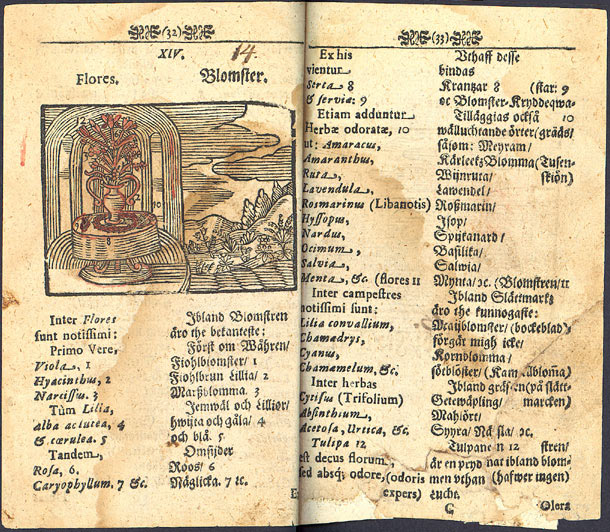 (32)
XIV.
14.
Flores.
Blomster.
12
2
10
Inter Flores
sunt notissimi:
Primo Vere,
Viola, 1
Hyacinthus, 2
Narcissus. 3
Tùm Lilia,
alba ac lutea, 4
& cœrulea. 5
Tandem,
Rosa, 6.
Caryophyllum. 7 &c.
Jbland Blomstren
äro the bekanteste:
Först om Wåhren/
Fiohlblomster/ 1
Fiohlbrun Lillia/ 2
Marßblomma. 3
Jemwäl och Lillior/
hwijta och gåla/ 4
och blå. 5
Omsijder
Roos/ 6
Näglicka. 7 ꝛc.
Ex
(33)
Ex his
vientur
Serta 8
& serviæ: 9
Etiam adduntur
Herbæ odoratæ, 10
ut: Amaracus,
Amaranthus,
Ruta,
Lavendula,
Rosmarinus (Libanotis)
Hyssopus,
Nardus,
Ocimum,
Salvia,
Menta, &c. (flores 11
Inter campestres
notissimi sunt:
Lilia convallium,
Chamædrys,
Cyanus,
Chamæmelum, &c.
Inter herbas
Cytisus (Trifolium)
Absinthium,
Acetosa, Urtica, &c.
Tulipa 12
est decus florum,
sed absq; odore, (odoris
expers)
Vthaff desse
bindas
Krantzar 8 (star: 9
oc Blomster-Kryddeqwa-
Tilläggias också 10
wälluchtande örter (gräås/
såsom: Meyram/
Kärleeks Blomma (Tusen-
Wijnruta/ skiön)
Lawendel/
Roßmarin/
Jsop/
Spijkanard/
Basilika/
Salwia/
Mynta/ ꝛc. (Blomstren/ 11
Jbland Slättmarks
äro the kunnogaste:
Maijblomster/ (bockeblad)
förgät migh icke/
Kornblomma/
sötblöster/ (Kam Ablom̃a)
Jbland gräsen (på slätt-
Getewäpling/ marcken)
Mahlört/
Syyra/ Näsla/ ꝛc.
Tulpanen 12 stren/
är en pryd nat ibland blom-
men vthan (hafwer ingen)
lucht.
C
Olera